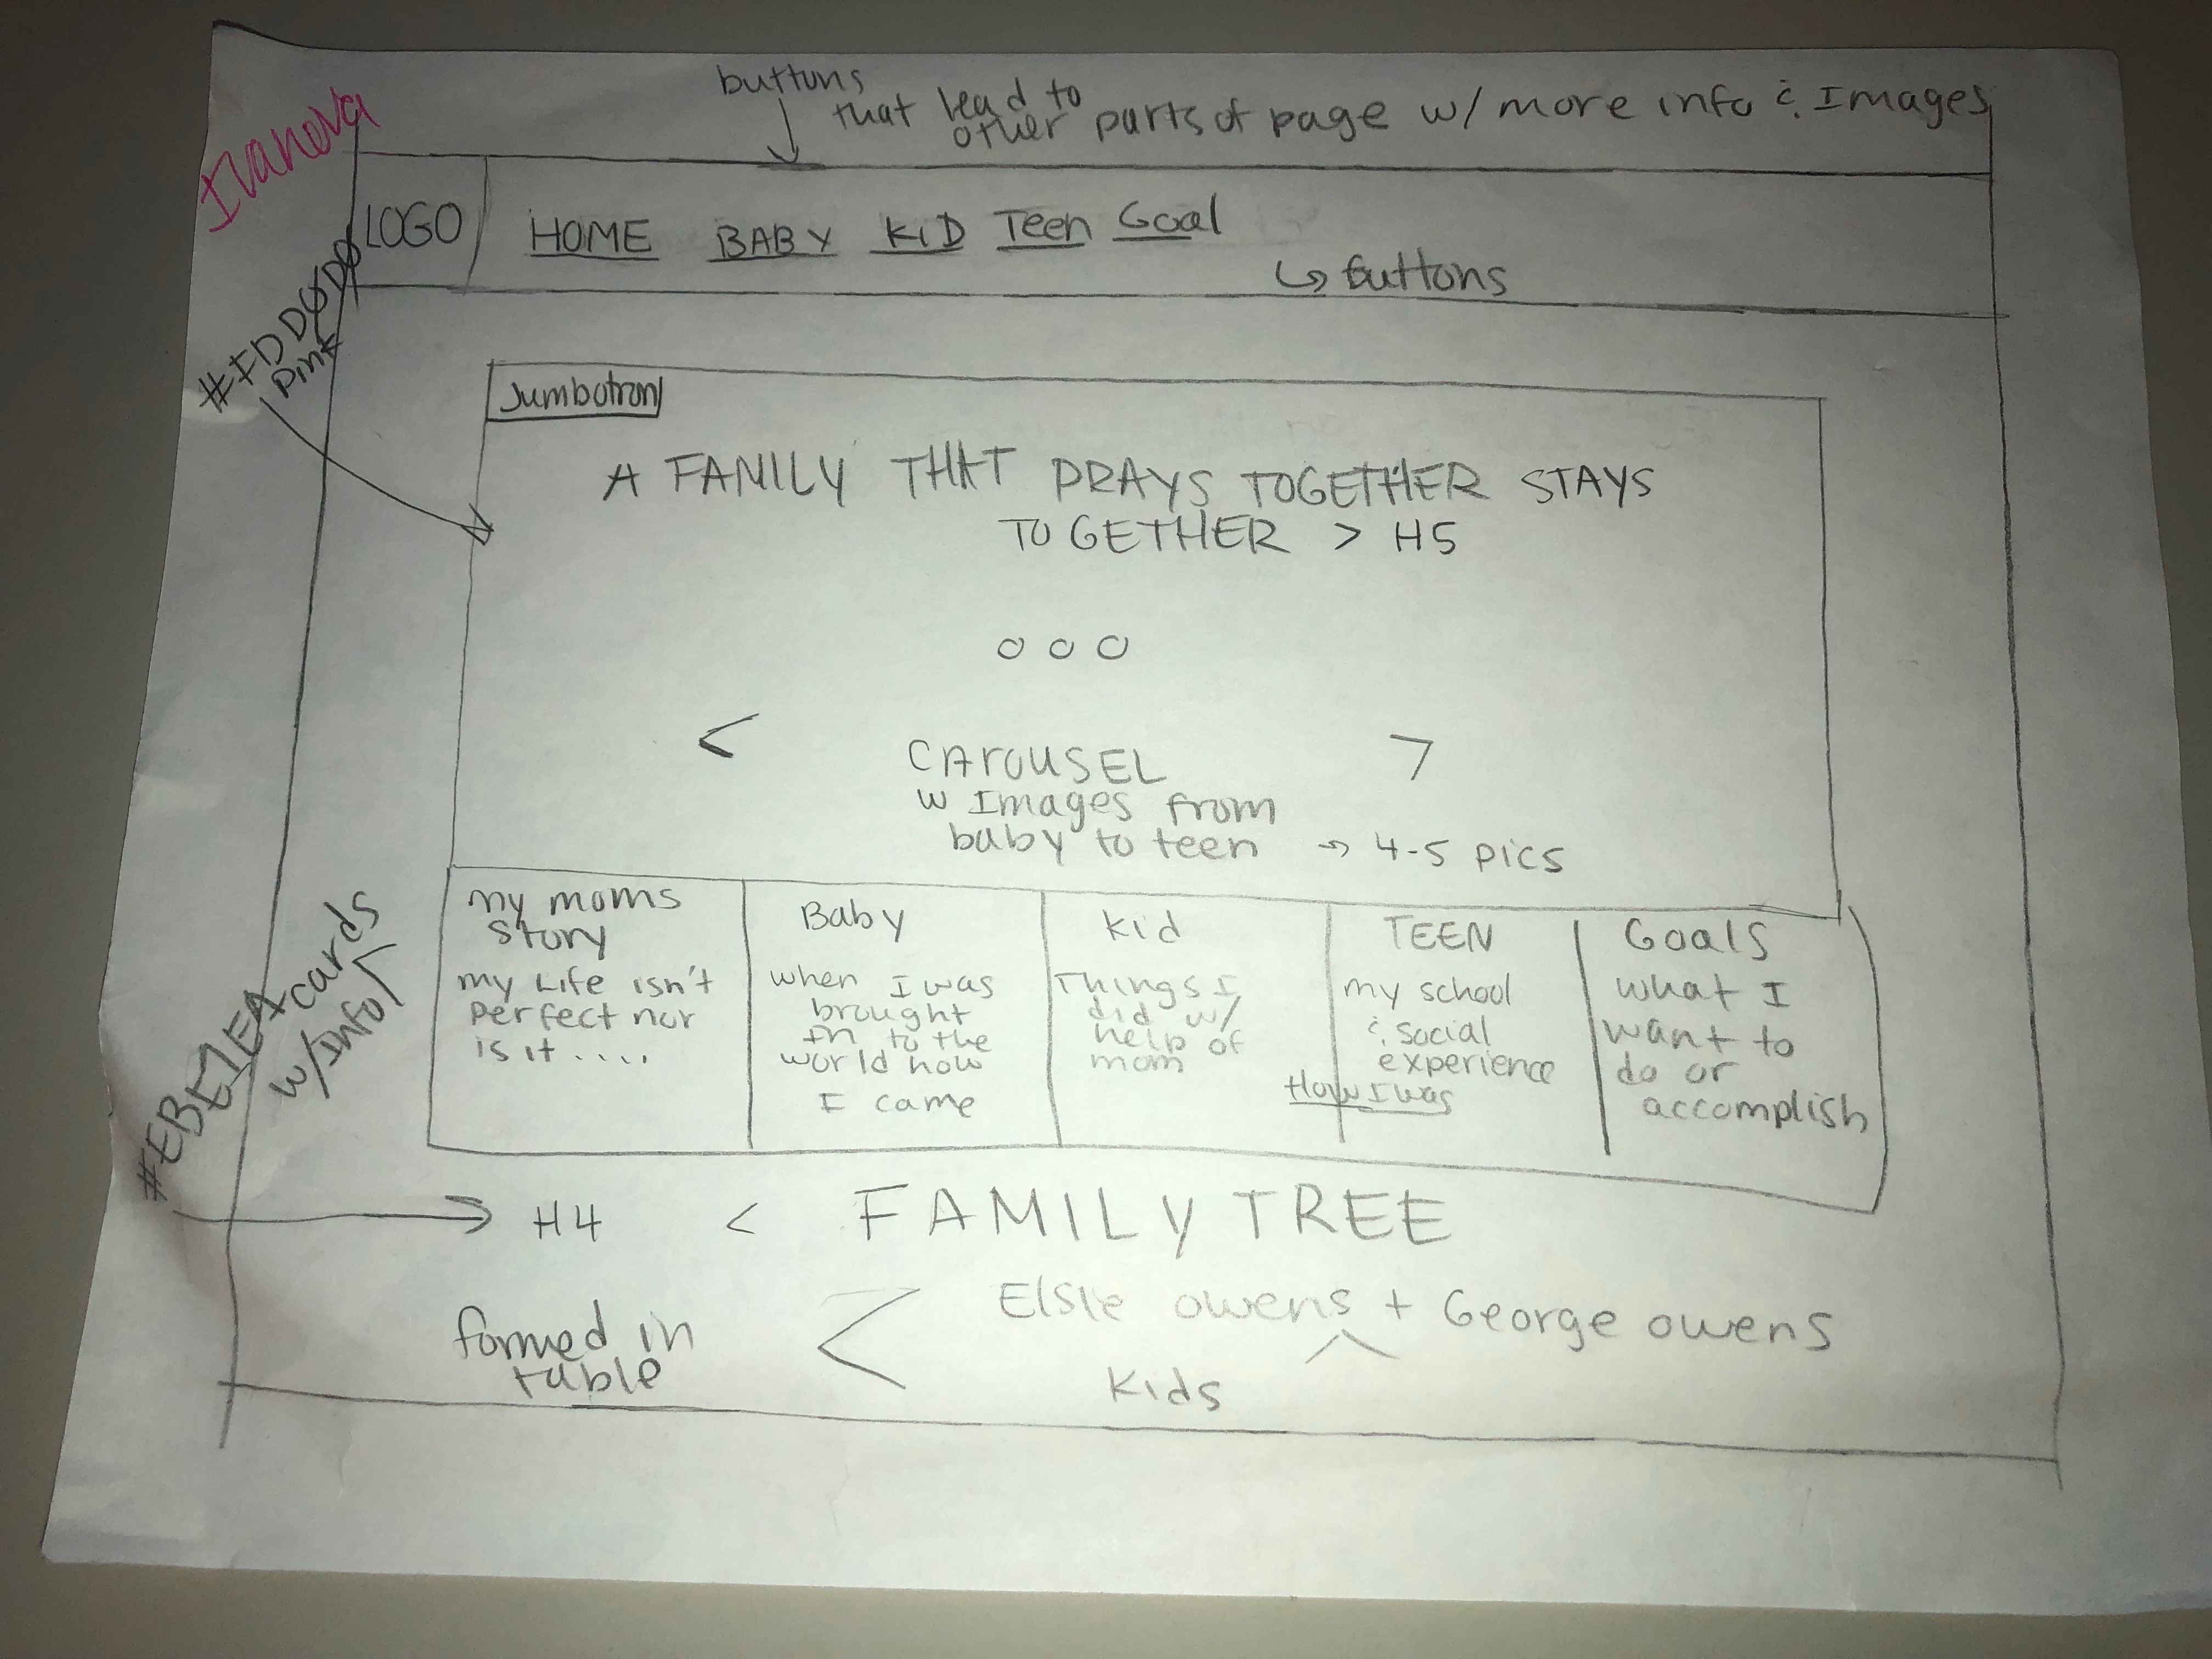 buttons
that lead to
other parts of page w/ more info & Images
LOGO
HOME BABY KID Teen Goal
↳ buttons
pink
Jumbotron
A FAMILY THAT PRAYS TOGETHER STAYS
TOGETHER > H5
○ ○ ○
< >
CArOUSEL
w Images from
baby to teen → 4-5 pics
my moms
story
my Life isn't
perfect nor
is it ....
Baby
when I was
brought
In to the
world how
I came
Kid
Things I
did w/
help of
mom
TEEN
my school
& social
experience
How I was
Goals
what I
want to
do or
accomplish
cards
w/Info
H4 < FAMILY TREE
formed in
table
Elsie owens + George owens
Kids